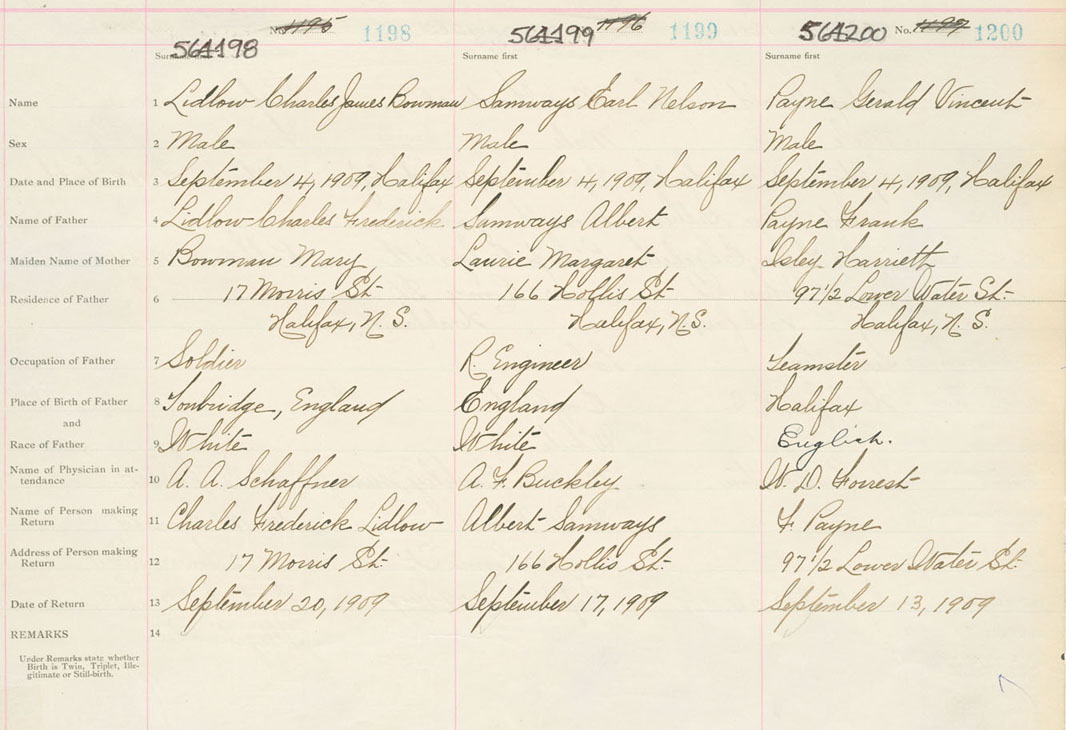 No. 1195 1198 1196 1199 No. 1197 1200
564198 564199 564200
Surname first Surname first Surname first
Name 1 Lidlow Charles James Bowman Samways Earl Nelson Payne Gerald Vincent
Sex 2 Male Male Male
Date and Place of Birth 3 September 4, 1909, Halifax September 4, 1909, Halifax September 4, 1909, Halifax
Name of Father 4 Lidlow Charles Frederick Samways Albert Payne Frank
Maiden Name of Mother 5 Bowman Mary Laurie Margaret Isley Harrieth
Residence of Father 6 17 Morris St. 166 Hollis St. 97 1/2 Lower Water St.
Halifax, N. S. Halifax, N. S. Halifax, N. S.
Occupation of Father 7 Soldier R. Engineer Teamster
Place of Birth of Father 8 Tonbridge, England England Halifax
and
Race of Father 9 White White English.
Name of Physician in at-
tendance 10 A. A. Schaffner A. F. Buckley W. D. Forrest
Name of Person making
Return 11 Charles Frederick Lidlow Albert Samways F. Payne
Address of Person making
Return 12 17 Morris St. 166 Hollis St. 97 1/2 Lower Water St.
Date of Return 13 September 20, 1909 September 17, 1909 September 13, 1909
REMARKS 14
Under Remarks state whether
Birth is Twin, Triplet, Ille-
gitimate or Still-birth.